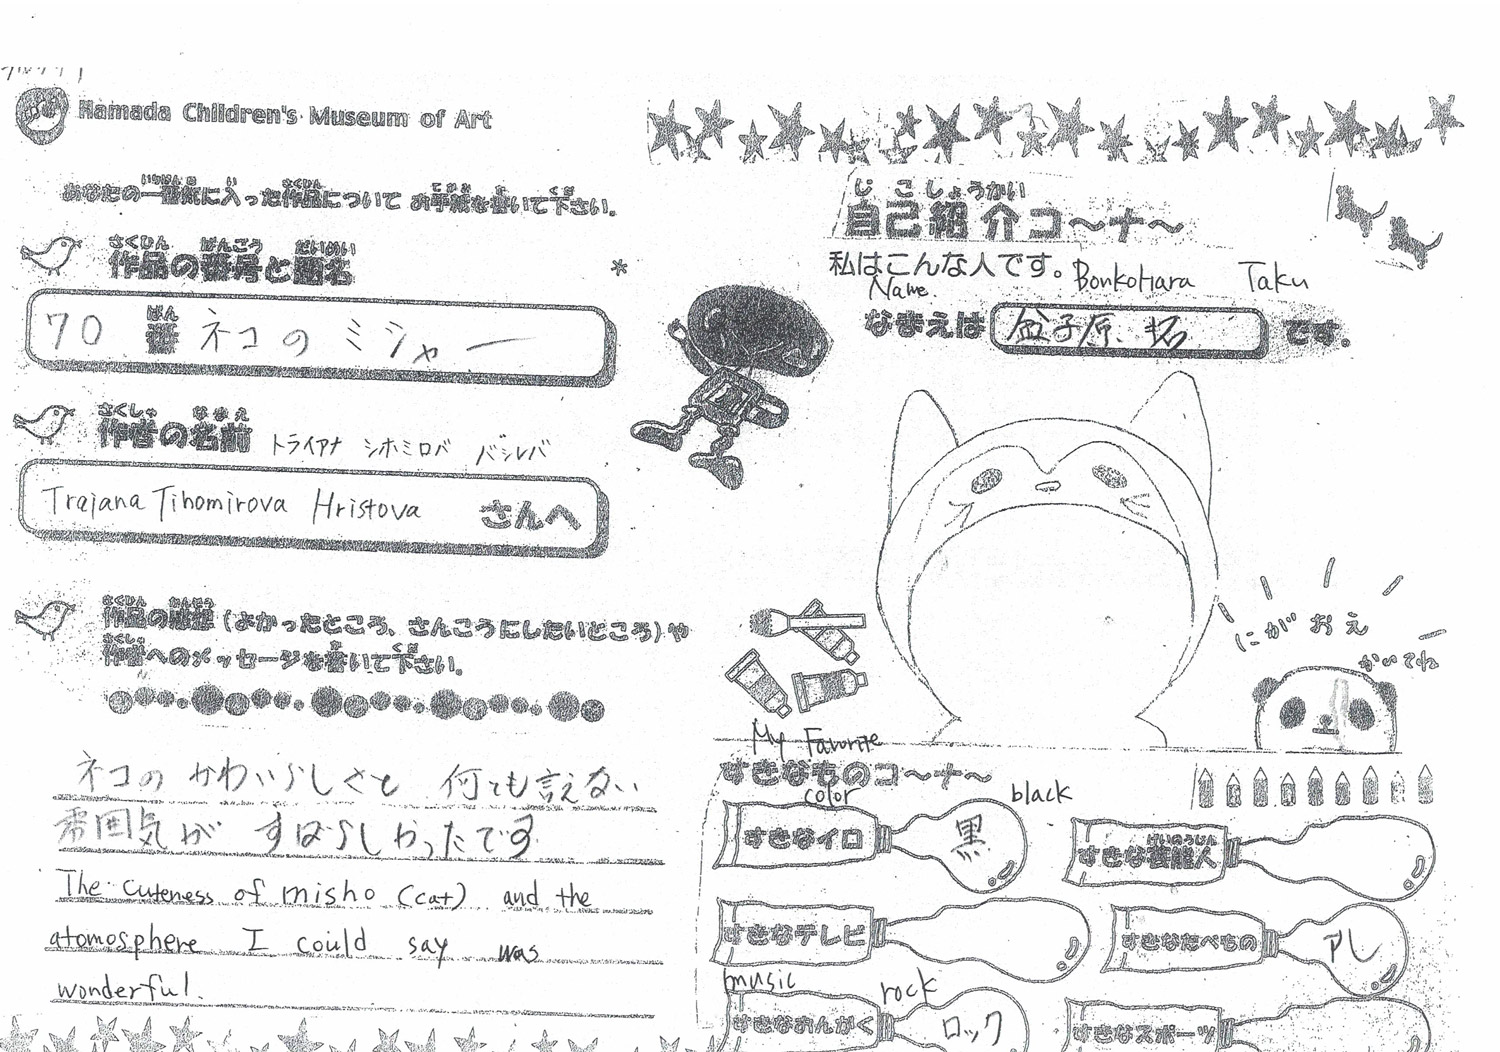 Hamada Children's Museum of Art
あなたの一番気に入った作品について お手紙を書いて下さい。
さくひん ばんごう だいめい
作品の番号と題名
*
ばん
70 番 ネコの ミシャー
さくしゃ なまえ
作者の名前 トライアナ シホミロバ
Trajana Tihomirova Hristova さんへ
さくひん かんそう
作品の感想(よかったところ、さんこうにしたいところ)や
さくしゃ
作者へのメッセージを書いて下さい。
ネコの かわいらしさと 何とも言えない
雰囲気が すばらしかったです
The cuteness of misho (cat) and the
atomosphere I could say was
wonderful.
じこしょうかい
自己紹介コ〜ナ〜
私はこんな人です。
Name. BonkoHara Taku
なまえは 盆子原 拓 です。
にがおえ
かいてね
My Favorite
すきなものコ〜ナ〜
color black
すきなイロ 黒
げいのうじん
すきな芸能人
すきなテレビ
すきなたべもの
music rock
すきなおんがく ロック
すきなスポーツ